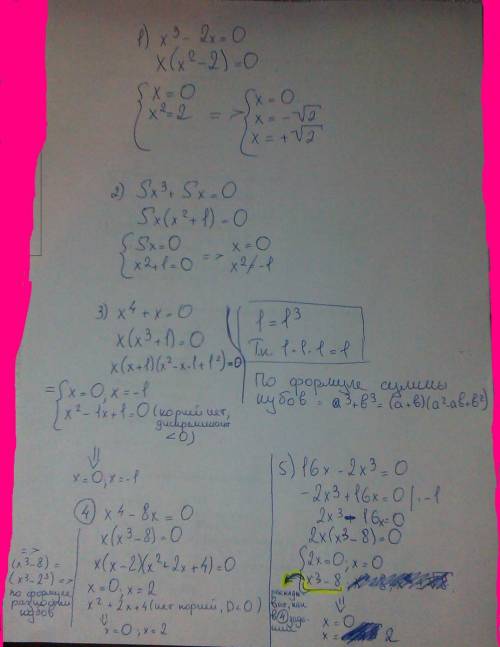 1) x³ - 2x = 0
x(x² - 2) = 0
{ x = 0
x² = 2 => { x = 0
x = -√2
x = +√2
2) 5x³ + 5x = 0
5x(x² + 1) = 0
{ 5x = 0 => x = 0
x2 + 1 = 0 x² ≠ -1
3) x⁴ + x = 0
x(x³ + 1) = 0
x(x+1)(x² - x·1 + 1²) = 0
= { x = 0, x = -1
x² - 1x + 1 = 0 (корней нет,
дискриминант
< 0)
⇓
x = 0, x = -1
1 = 1³
Т.к. 1·1·1 = 1
По формуле суммы
кубов = a³ + b³ = (a+b)(a² - ab + b²)
4) x⁴ - 8x = 0
x(x³ - 8) = 0
x(x - 2)(x² + 2x + 4) = 0
x = 0; x = 2
x² + 2x + 4 (нет корней, D < 0)
⇓
x = 0; x = 2
=>
(x³ - 8) =
(x³ - 2³) =>
по формуле
разности
кубов
5) 16x - 2x³ = 0
-2x³ + 16x = 0 | · -1
2x³ - 16x = 0
2x(x³ - 8) = 0
{ 2x = 0; x = 0
x³ - 8
как
в 4
⇓
x = 0
x = 2